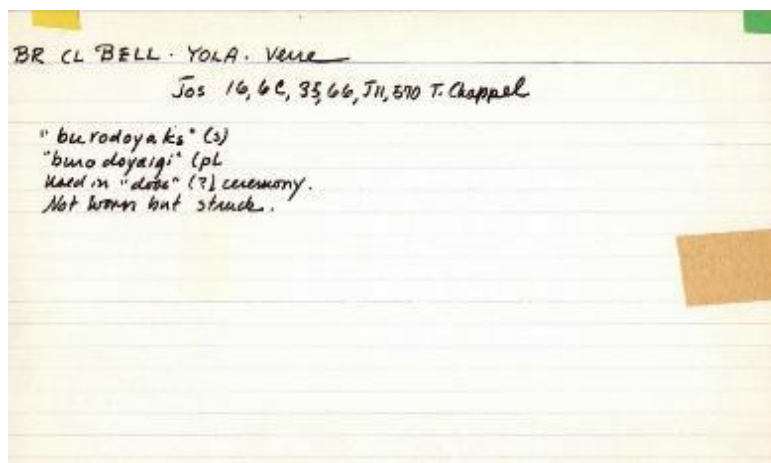 BR CL BELL. YOLA. Verre
Jos 16, 6C, 35, 66, J11, 570 T. Chappel
"burodoyaks" (s)
"burodoyaigi" (pl
Used in "dobe" (?) ceremony.
Not worn but struck.